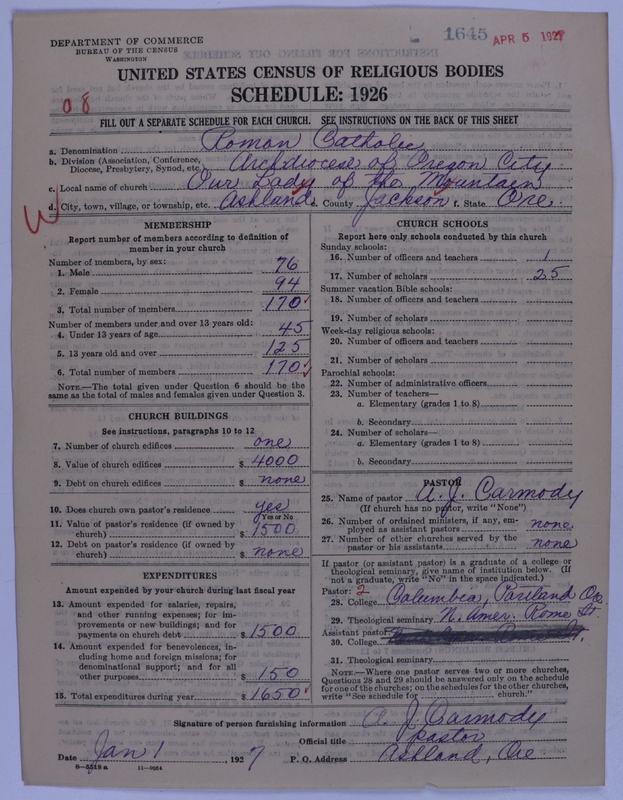 1645 APR 5 1927
DEPARTMENT OF COMMERCE
BUREAU OF THE CENSUS
WASHINGTON
UNITED STATES CENSUS OF RELIGIOUS BODIES
SCHEDULE: 1926
08
FILL OUT A SEPARATE SCHEDULE FOR EACH CHURCH. SEE INSTRUCTIONS ON THE BACK OF THIS SHEET
a. Denomination Roman Catholic
b. Division (Association, Conference, Diocese, Presbytery, Synod, etc.) Archdiocese of Oregon City
c. Local name of church Our Lady of the Mountain
W d. City, town, village, or township, etc. Ashland e. County Jackson f. State Ore.
MEMBERSHIP
Report number of members according to definition of
member in your church
Number of members, by sex:
1. Male 76
2. Female 94
3. Total number of members 170
Number of members under and over 13 years old:
4. Under 13 years of age 45
5. 13 years old and over 125
6. Total number of members 170
NOTE.—The total given under Question 6 should be the
same as the total of males and females given under Question 3.
CHURCH BUILDINGS
See instructions, paragraphs 10 to 12
7. Number of church edifices one
8. Value of church edifices $ 4000
9. Debt on church edifices $ none
10. Does church own pastor's residence yes
Yes or No
11. Value of pastor's residence (if owned by
church) $ 1500
12. Debt on pastor's residence (if owned by
church) $ none
EXPENDITURES
Amount expended by your church during last fiscal year
13. Amount expended for salaries, repairs,
and other running expenses; for im-
provements or new buildings; and for
payments on church debt $ 1500
14. Amount expended for benevolences, in-
cluding home and foreign missions; for
denominational support; and for all
other purposes $ 150
15. Total expenditures during year $ 1650
CHURCH SCHOOLS
Report here only schools conducted by this church
Sunday schools:
16. Number of officers and teachers 1
17. Number of scholars 25
Summer vacation Bible schools:
18. Number of officers and teachers
19. Number of scholars
Week-day religious schools:
20. Number of officers and teachers
21. Number of scholars
Parochial schools:
22. Number of administrative officers
23. Number of teachers—
a. Elementary (grades 1 to 8)
b. Secondary
24. Number of scholars—
a. Elementary (grades 1 to 8)
b. Secondary
PASTOR
25. Name of pastor A. J. Carmody
(If church has no pastor, write "None")
26. Number of ordained ministers, if any, em-
ployed as assistant pastors none
27. Number of other churches served by the
pastor or his assistants none
If pastor (or assistant pastor) is a graduate of a college or
theological seminary, give name of institution below. (If
not a graduate, write "No" in the space indicated.)
Pastor: 2
28. College Columbia, Portland Ore
29. Theological seminary N. Amer. Rome It.
Assistant pastor:
30. College
31. Theological seminary
NOTE.—Where one pastor serves two or more churches,
Questions 28 and 29 should be answered only on the schedule
for one of the churches; on the schedules for the other churches,
write "See schedule for church."
Signature of person furnishing information A. J. Carmody
Official title pastor
Date Jan 1, 1927 P. O. Address Ashland, Ore
8—5518 a 11—9654